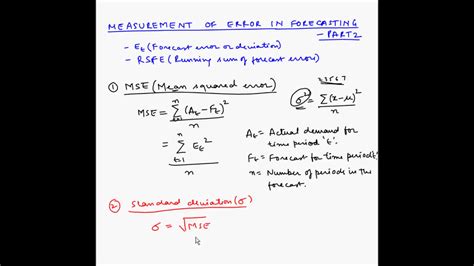 MEASUREMENT OF ERROR IN FORECASTING
- PART 2
- Et (Forecast error or deviation)
- RSFE (Running sum of forecast error)
① MSE (Mean squared error)
MSE = n∑t=1 (At - Ft)²/n
= n∑t=1 Et²/n
2 3 5 6 7
σ² = ∑(x-μ)²/n
At = Actual demand for
time period 't'.
Ft = Forecast for time period t.
n = Number of periods in the
forecast.
② Standard deviation (σ)
σ = √MSE